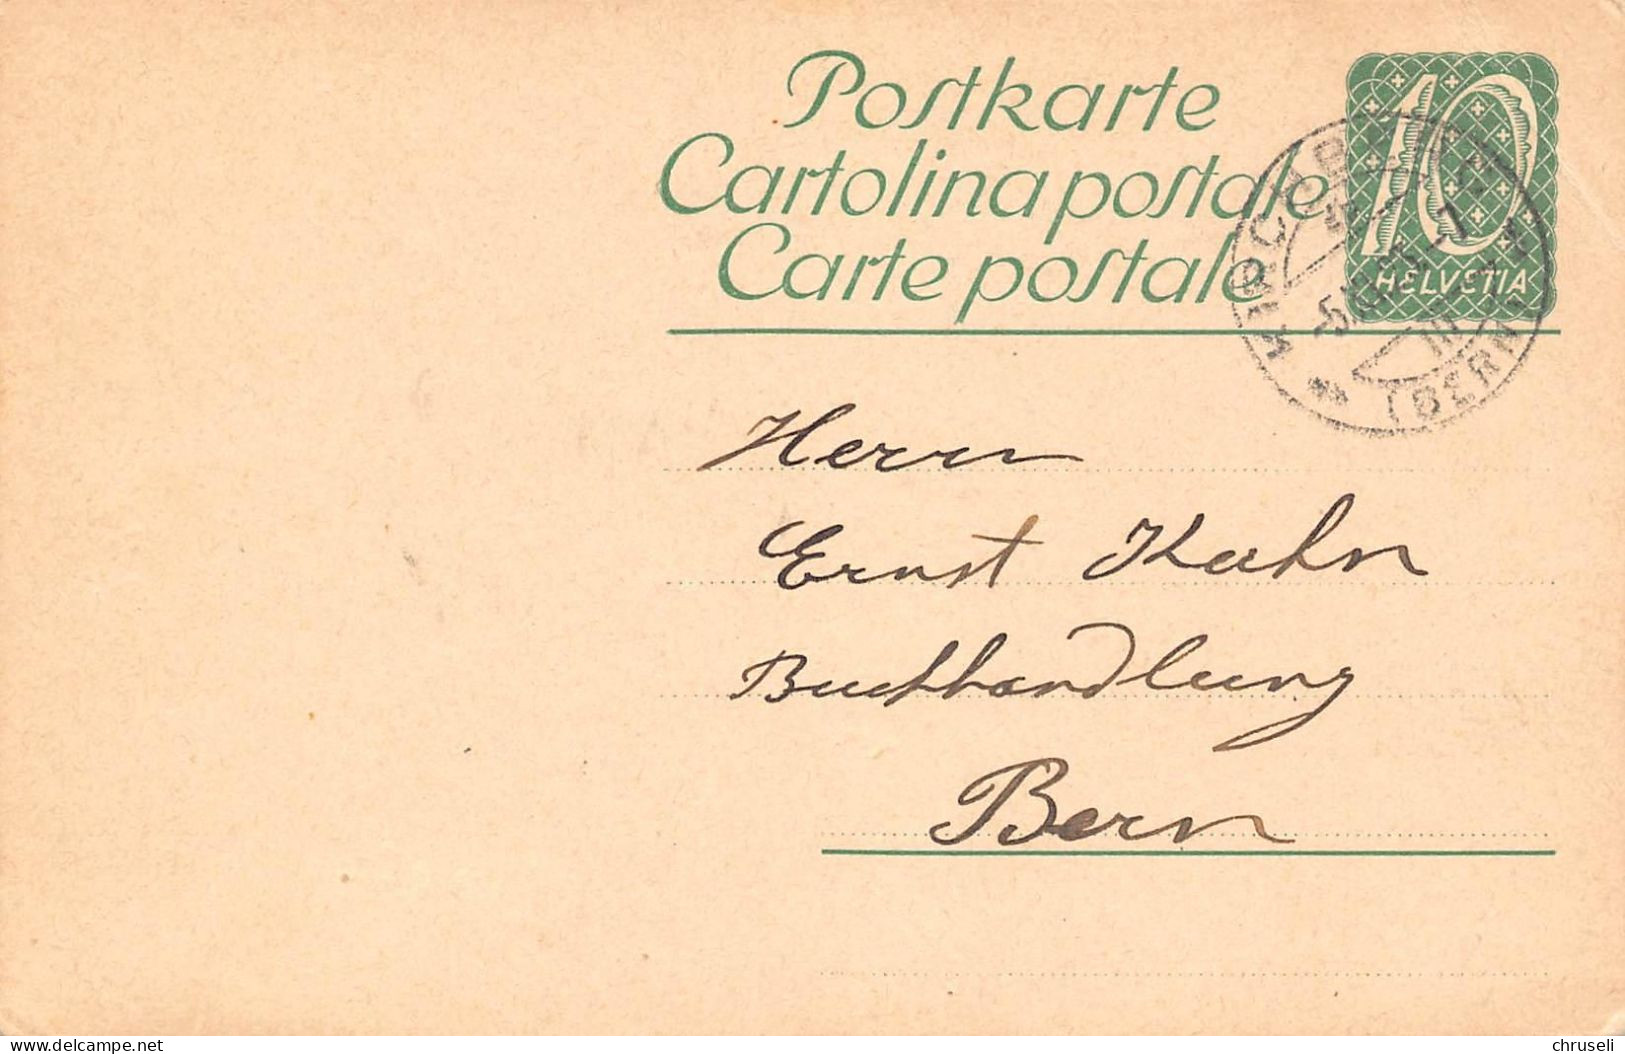 Postkarte
Cartolina postale
Carte postale
10
HELVETIA
KIRCHBERG
(BERN)
Herrn
Ernst Kuhn
Buchhandlung
Bern
delcampe.net
chruseli